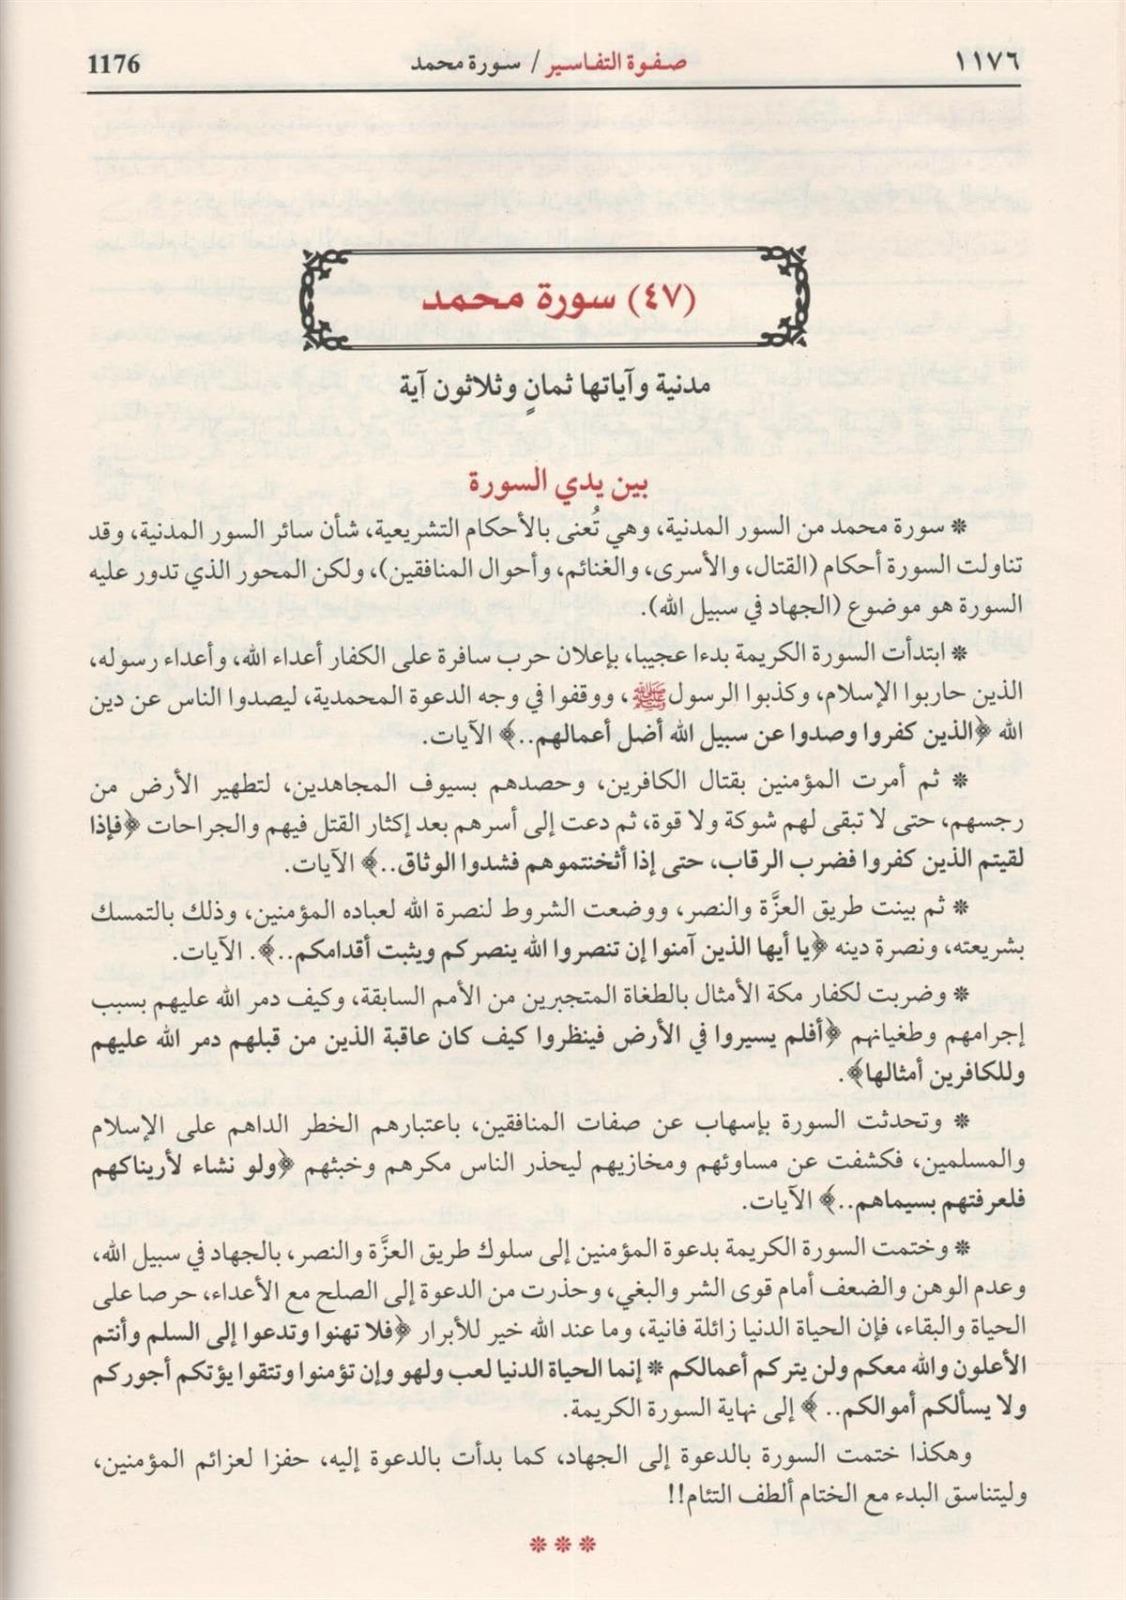 ١١٧٦ صفوة التفاسير / سورة محمد 1176
(٤٧) سورة محمد
مدنية وآياتها ثمانٍ وثلاثون آية
بين يدي السورة
* سورة محمد من السور المدنية، وهي تُعنى بالأحكام التشريعية، شأن سائر السور المدنية، وقد
تناولت السورة أحكام (القتال، والأسرى، والغنائم، وأحوال المنافقين)، ولكن المحور الذي تدور عليه
السورة هو موضوع (الجهاد في سبيل الله).
* ابتدأت السورة الكريمة بدءا عجيبا، بإعلان حرب سافرة على الكفار أعداء الله، وأعداء رسوله،
الذين حاربوا الإسلام، وكذبوا الرسول ﷺ، ووقفوا في وجه الدعوة المحمدية، ليصدوا الناس عن دين
الله ﴿الذين كفروا وصدوا عن سبيل الله أضل أعمالهم..﴾ الآيات.
* ثم أمرت المؤمنين بقتال الكافرين، وحصدهم بسيوف المجاهدين، لتطهير الأرض من
رجسهم، حتى لا تبقى لهم شوكة ولا قوة، ثم دعت إلى أسرهم بعد إكثار القتل فيهم والجراحات ﴿فإذا
لقيتم الذين كفروا فضرب الرقاب، حتى إذا أثخنتموهم فشدوا الوثاق..﴾ الآيات.
* ثم بينت طريق العزَّة والنصر، ووضعت الشروط لنصرة الله لعباده المؤمنين، وذلك بالتمسك
بشريعته، ونصرة دينه ﴿يا أيها الذين آمنوا إن تنصروا الله ينصركم ويثبت أقدامكم..﴾. الآيات.
* وضربت لكفار مكة الأمثال بالطغاة المتجبرين من الأمم السابقة، وكيف دمر الله عليهم بسبب
إجرامهم وطغيانهم ﴿أفلم يسيروا في الأرض فينظروا كيف كان عاقبة الذين من قبلهم دمر الله عليهم
وللكافرين أمثالها﴾.
* وتحدثت السورة بإسهاب عن صفات المنافقين، باعتبارهم الخطر الداهم على الإسلام
والمسلمين، فكشفت عن مساوئهم ومخازيهم ليحذر الناس مكرهم وخبثهم ﴿ولو نشاء لأريناكهم
فلعرفتهم بسيماهم..﴾ الآيات.
* وختمت السورة الكريمة بدعوة المؤمنين إلى سلوك طريق العزَّة والنصر، بالجهاد في سبيل الله،
وعدم الوهن والضعف أمام قوى الشر والبغي، وحذرت من الدعوة إلى الصلح مع الأعداء، حرصا على
الحياة والبقاء، فإن الحياة الدنيا زائلة فانية، وما عند الله خير للأبرار ﴿فلا تهنوا وتدعوا إلى السلم وأنتم
الأعلون والله معكم ولن يتركم أعمالكم * إنما الحياة الدنيا لعب ولهو وإن تؤمنوا وتتقوا يؤتكم أجوركم
ولا يسألكم أموالكم.. ﴾ إلى نهاية السورة الكريمة.
وهكذا ختمت السورة بالدعوة إلى الجهاد، كما بدأت بالدعوة إليه، حفزا لعزائم المؤمنين،
وليتناسق البدء مع الختام ألطف التئام!!
* * *